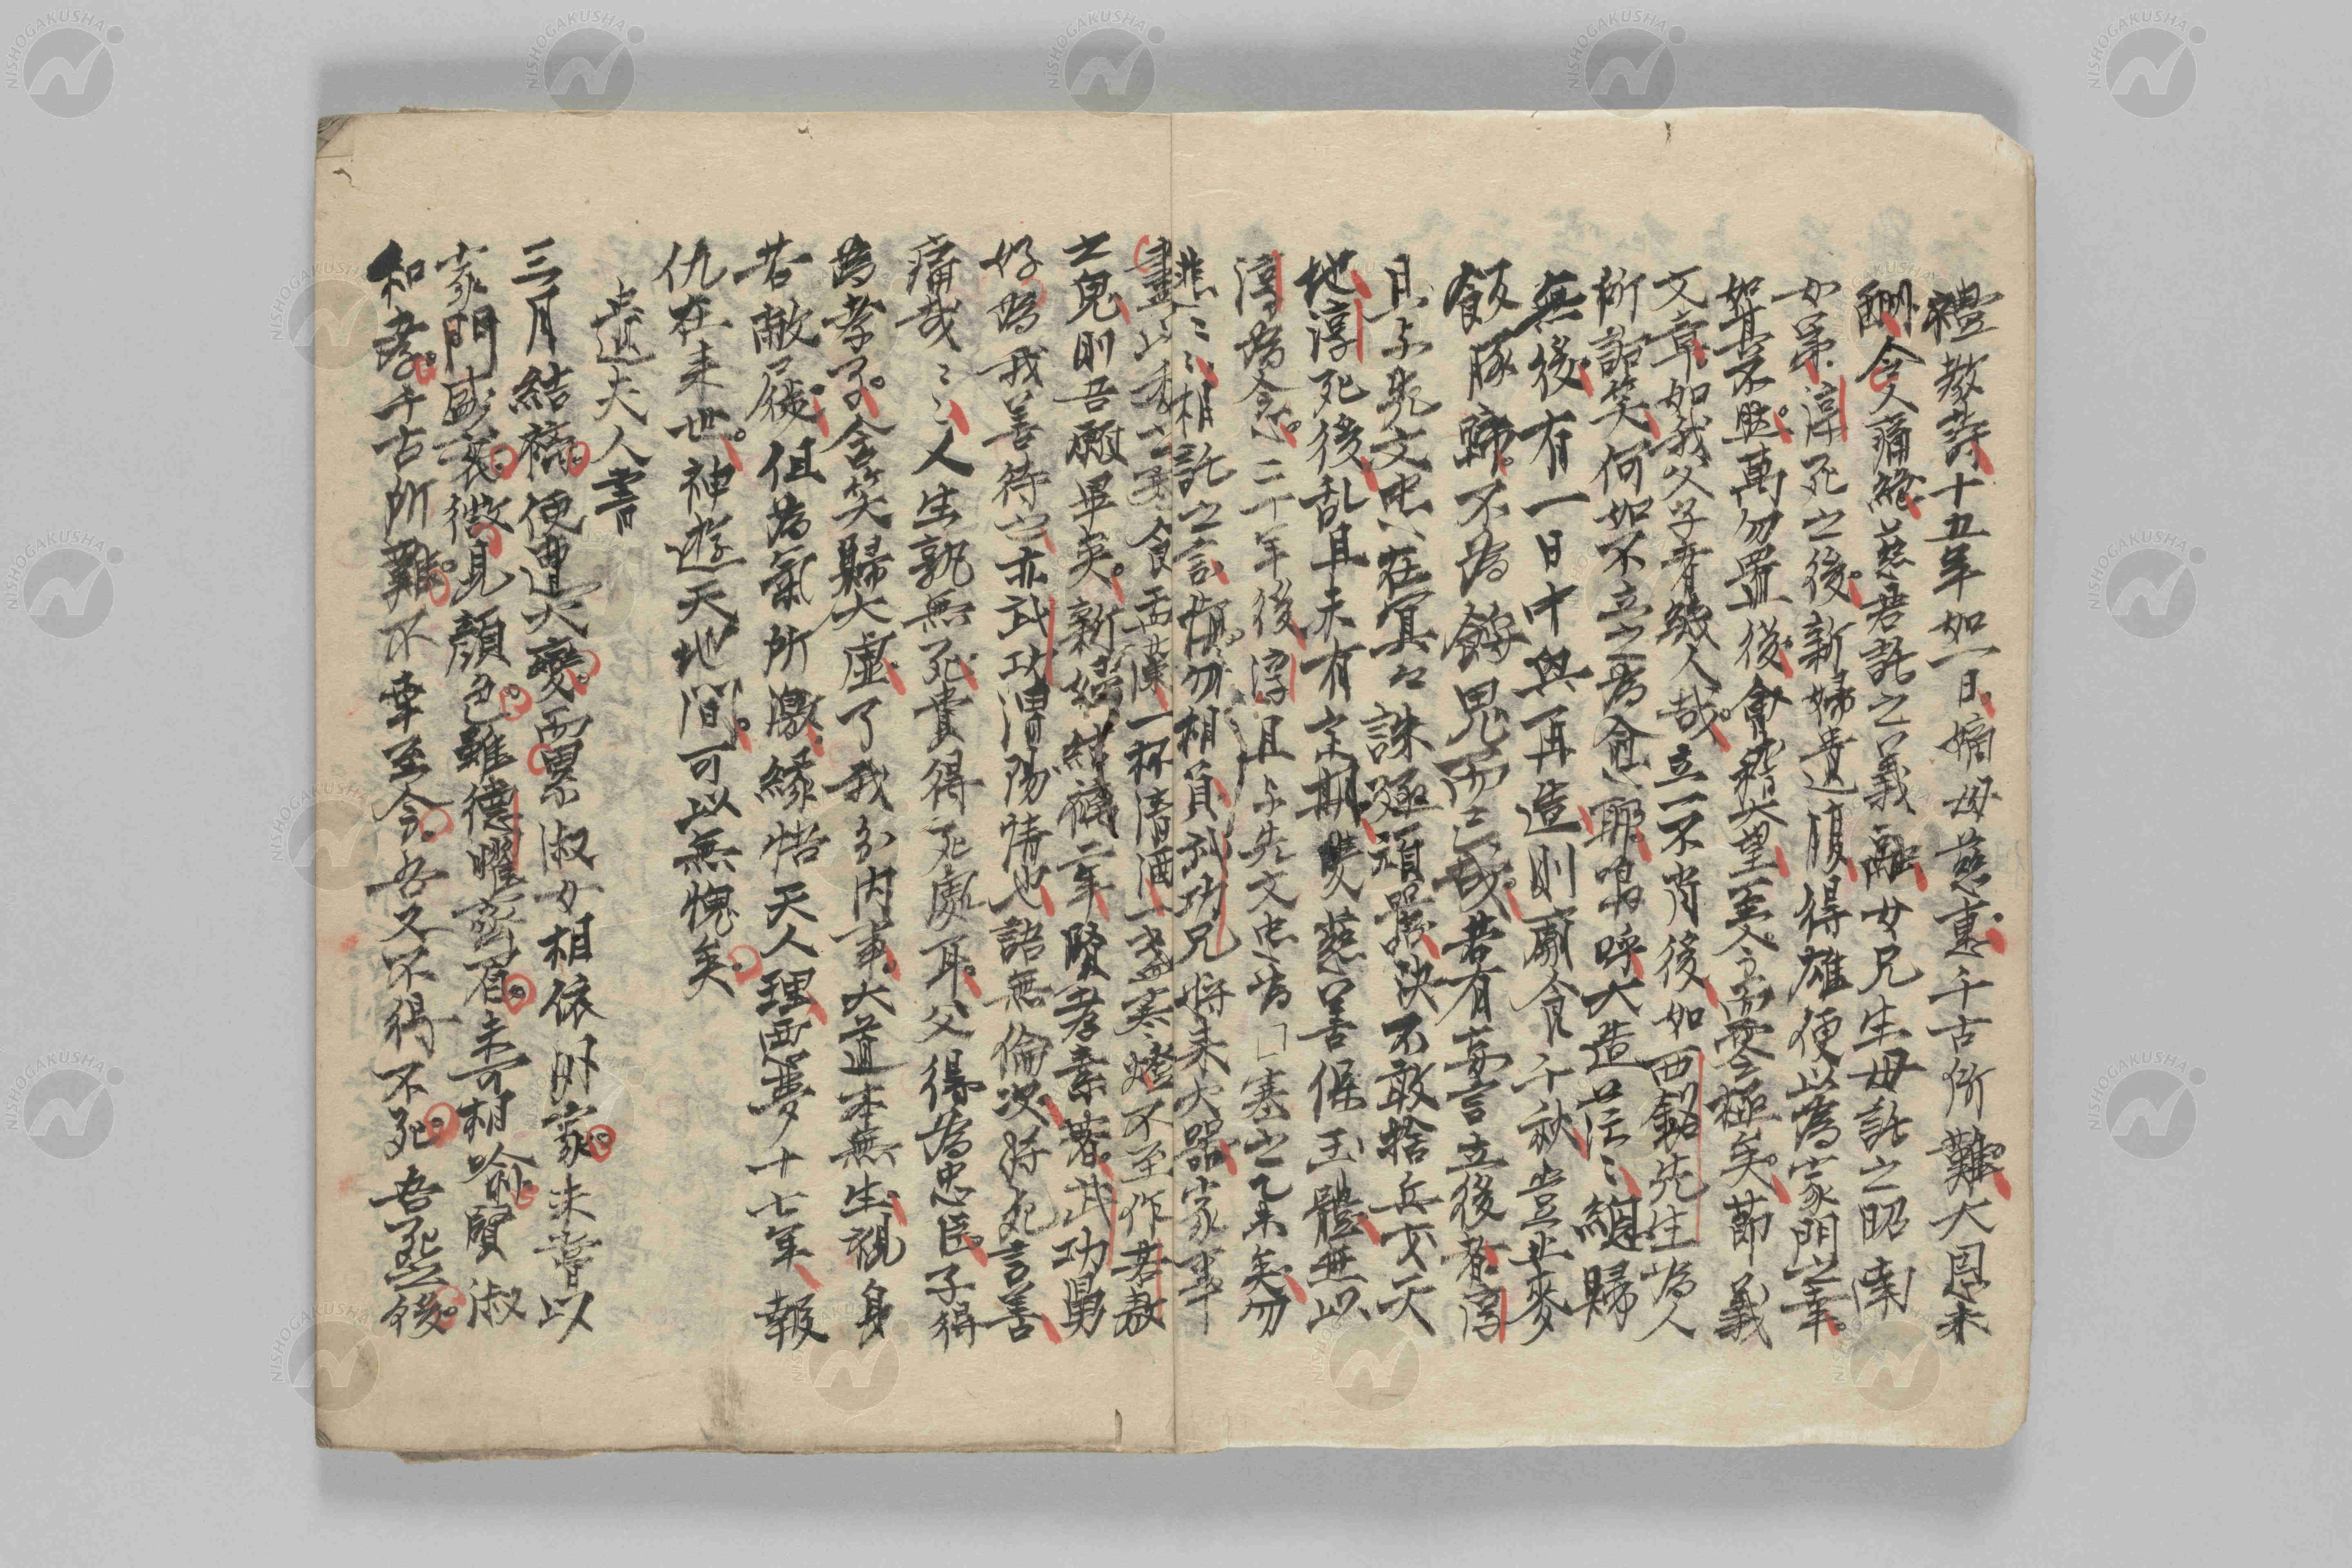 禮教詩十五年如一日嫡母慈惠千古所難大恩未
酬令人痛絶慈君託之義融女兄生母託之昭南
女弟淳死之後新婦遺腹得雄便以為家門之幸
如其不然萬勿置後會稽大望至今而零極矣節義
文章如我父子者幾人哉立一不肖後如西銘先生為人
所詬笑何如不立之為愈耶嗚呼大造茫〻總歸
無後有一日中興再造則廟食千秋豈止麥
飯豚蹄不為餒鬼而已哉若有妄言立後者淳
且与先文忠在冥〻誅殛頑嚚決不敢捨兵戈天
地淳死後乱且未有定期雙慈善保玉體無以
淳為念二十年後淳且与先文忠為□塞之矣勿
悲〻相託之言慎勿相負武功兄將来大器家事
盡以委之寒食盂蘭一杯清酒一盞寒燈不至作若敖
之鬼則吾願畢矣新婦結褵二年賢孝素著武功甥
好為我善待之亦武功渭陽情也語無倫次將死言善
痛哉〻〻人生孰無死貴得死處耳父得為忠臣子得
為孝子含笑歸太虛了我分内事大道本無生視身
若敝屣但為氣所激緣悟天人理惡夢十七年報
仇在来世神遊天地間可以無愧矣
遺夫人書
三月結褵便遭大變而累淑女相依外家未嘗以
家門盛衰微見顔色雖德曜齊眉未可相喩賢淑
和孝千古所難不幸至今吾又不得不死吾死後